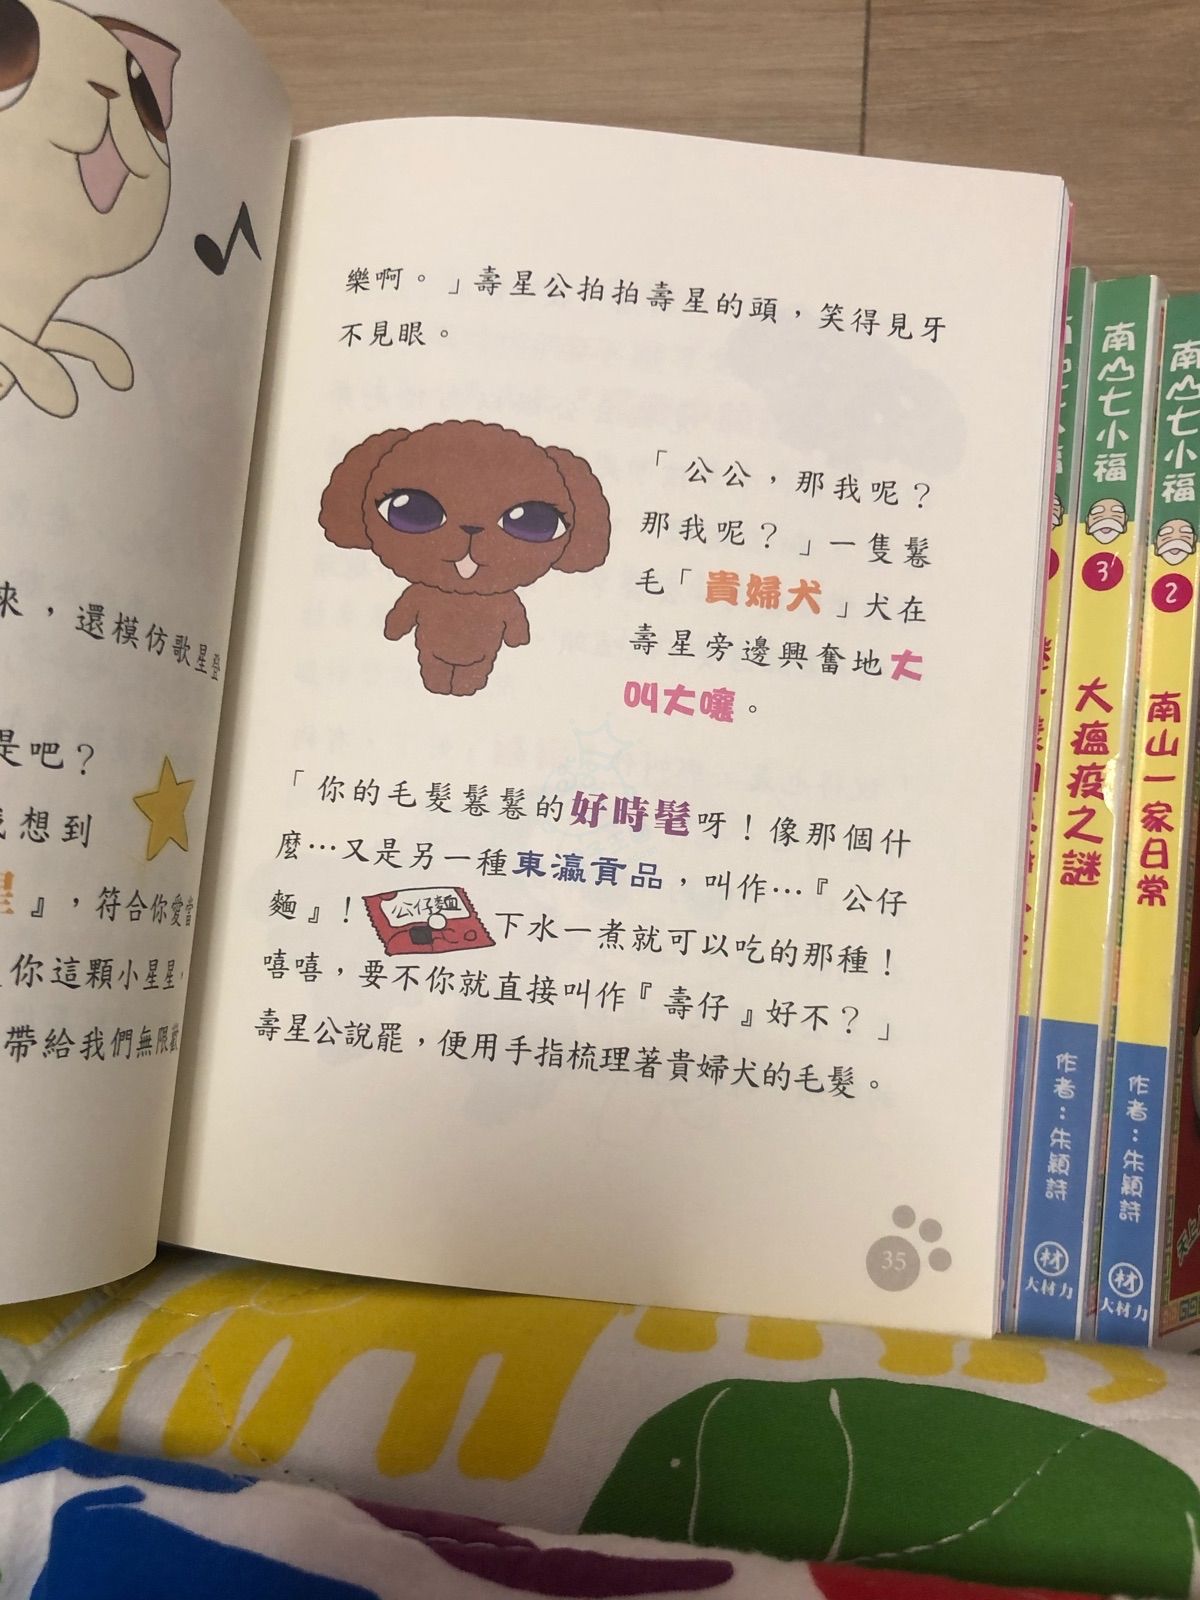 來，還模仿歌星登
是吧？
我想到
星』，符合你愛當
你這顆小星星，
帶給我們無限歡
樂啊。」壽星公拍拍壽星的頭，笑得見牙
不見眼。
「公公，那我呢？
那我呢？」一隻鬈
毛「貴婦犬」犬在
壽星旁邊興奮地大
叫大嚷。
「你的毛髮鬈鬈的好時髦呀！像那個什
麼…又是另一種東瀛貢品，叫作…『公仔
麵』！
公仔麵
下水一煮就可以吃的那種！
嘻嘻，要不你就直接叫作『壽仔』好不？」
壽星公說罷，便用手指梳理著貴婦犬的毛髮。
35
南山七小福
3
大瘟疫之謎
作者：朱穎詩
材
大材力
南山七小福
2
南山一家日常
作者：朱穎詩
材
大材力